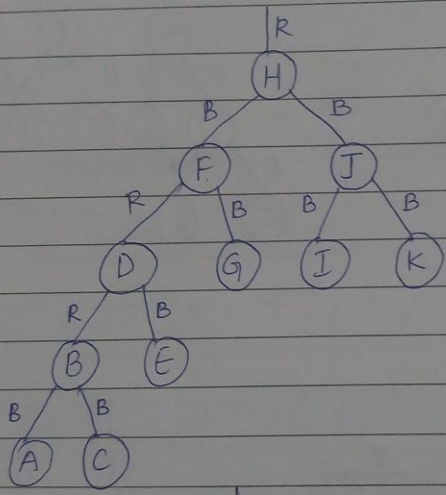 R
H
B B
F J
R B B B
D G I K
R B
B E
B B
A C